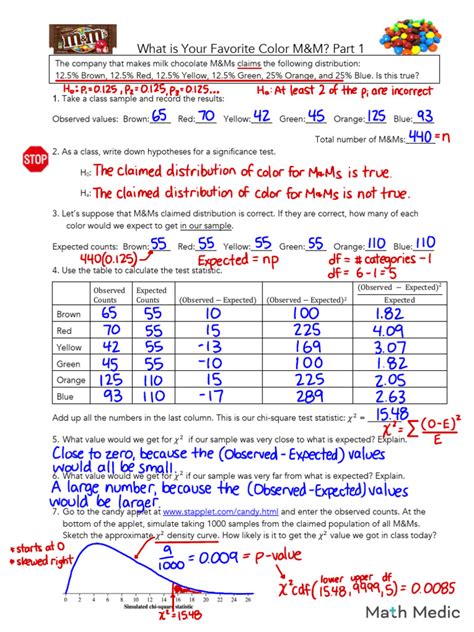 m&m's
What is Your Favorite Color M&M? Part 1
The company that makes milk chocolate M&Ms claims the following distribution:
12.5% Brown, 12.5% Red, 12.5% Yellow, 12.5% Green, 25% Orange, and 25% Blue. Is this true?
H₀: p₁=0.125, p₂=0.125, p₃=0.125... Hₐ: At least 2 of the pᵢ are incorrect
1. Take a class sample and record the results:
Observed values: Brown: 65 Red: 70 Yellow: 42 Green: 45 Orange: 125 Blue: 93
Total number of M&Ms: 440 = n
STOP
2. As a class, write down hypotheses for a significance test.
H₀: The claimed distribution of color for M&Ms is true.
Hₐ: The claimed distribution of color for M&Ms is not true.
3. Let's suppose that M&Ms claimed distribution is correct. If they are correct, how many of each
color would we expect to get in our sample.
Expected counts: Brown: 55 Red: 55 Yellow: 55 Green: 55 Orange: 110 Blue: 110
440(0.125) Expected = np df = # categories -1
df = 6-1=5
4. Use the table to calculate the test statistic.
Observed Counts Expected Counts (Observed − Expected) (Observed − Expected)² (Observed − Expected)² / Expected
Brown 65 55 10 100 1.82
Red 70 55 15 225 4.09
Yellow 42 55 -13 169 3.07
Green 45 55 -10 100 1.82
Orange 125 110 15 225 2.05
Blue 93 110 -17 289 2.63
Add up all the numbers in the last column. This is our chi-square test statistic: χ² = 15.48
χ² = Σ (O-E)² / E
5. What value would we get for χ² if our sample was very close to what is expected? Explain.
Close to zero, because the (Observed-Expected) values
would all be small.
6. What value would we get for χ² if our sample was very far from what is expected? Explain.
A large number, because the (Observed-Expected) values
would be larger.
7. Go to the candy applet at www.stapplet.com/candy.html and enter the observed counts. At the
bottom of the applet, simulate taking 1000 samples from the claimed population of all M&Ms.
Sketch the approximate χ² density curve. How likely is it to get the χ² value we got in class today?
* starts at 0
* skewed right
9/1000 = 0.009 = p-value
lower upper df
χ²cdf(15.48, 9999, 5) = 0.0085
0 2 4 6 8 10 12 14 16 18 20 22 24 26
Simulated chi-square statistic
χ²=15.48
Math Medic